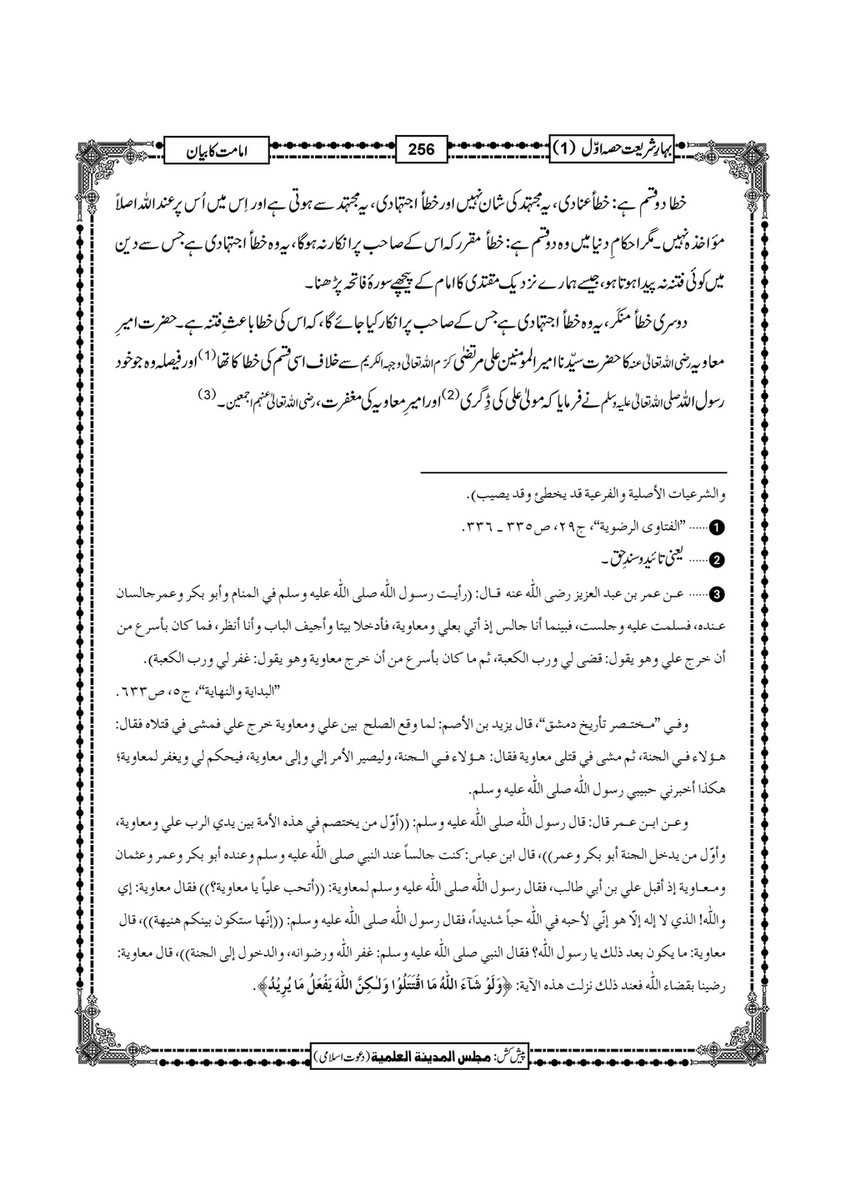 بہارِشریعت حصہ اوّل (1)
256
امامت کا بیان
خطا دو قسم ہے: خطأ عنادی، یہ مجتہد کی شان نہیں اور خطأ اجتہادی، یہ مجتہد سے ہوتی ہے اور اِس میں اُس پر عند اللہ اصلاً
مؤاخذہ نہیں۔ مگر احکامِ دنیا میں وہ دو قسم ہے: خطأ مقرر کہ اس کے صاحب پر انکار نہ ہوگا، یہ وہ خطأ اجتہادی ہے جس سے دین
میں کوئی فتنہ نہ پیدا ہوتا ہو، جیسے ہمارے نزدیک مقتدی کا امام کے پیچھے سورۂ فاتحہ پڑھنا۔
دوسری خطأ منکَر، یہ وہ خطأ اجتہادی ہے جس کے صاحب پر انکار کیا جائے گا، کہ اس کی خطا باعثِ فتنہ ہے۔ حضرت امیرِ
معاویہ رضی اللہ تعالیٰ عنہ کا حضرت سیّدنا امیر المومنین علی مرتضیٰ کرّم اللہ تعالیٰ وجہہ الکریم سے خلاف اسی قسم کی خطا کا تھا (1) اور فیصلہ وہ جو خود
رسول اللہ صلی اللہ تعالیٰ علیہ وسلم نے فرمایا کہ مولیٰ علی کی ڈِگری (2) اور امیرِ معاویہ کی مغفرت، رضی اللہ تعالیٰ عنہم اجمعین۔ (3)
والشرعيات الأصلية والفرعية قد يخطئ وقد يصيب).
❶...... ”الفتاوى الرضوية“، ج٢٩، ص٣٣٥ ـ ٣٣٦.
❷...... یعنی تائید و سندِ حق۔
❸...... عـن عمر بن عبد العزيز رضى الله عنه قـال: (رأيـت رسـول الله صلى الله عليه وسلم في المنام وأبو بكر وعمر جالسان
عـنده، فسلمت عليه وجلست، فبينما أنا جالس إذ أتي بعلي ومعاوية، فأدخلا بيتا وأجيف الباب وأنا أنظر، فما كان بأسرع من
أن خرج علي وهو يقول: قضى لي ورب الكعبة، ثم ما كان بأسرع من أن خرج معاوية وهو يقول: غفر لي ورب الكعبة).
”البداية والنهاية“، ج٥، ص٦٣٣.
وفـي ”مـختـصر تأريخ دمشق“، قال يزيد بن الأصم: لما وقع الصلح بين علي ومعاوية خرج علي فمشى في قتلاه فقال:
هـؤلاء فـي الجنة، ثم مشى في قتلى معاوية فقال: هـؤلاء فـي الـجنة، وليصير الأمر إلي وإلى معاوية، فيحكم لي ويغفر لمعاوية؛
هكذا أخبرني حبيبي رسول الله صلى الله عليه وسلم.
وعـن ابـن عـمر قال: قال رسول الله صلى الله عليه وسلم: ((أوّل من يختصم في هذه الأمة بين يدي الرب علي ومعاوية،
وأوّل من يدخل الجنة أبو بكر وعمر))، قال ابن عباس: كنت جالساً عند النبي صلى الله عليه وسلم وعنده أبو بكر وعمر وعثمان
ومـعـاوية إذ أقبل علي بن أبي طالب، فقال رسول الله صلى الله عليه وسلم لمعاوية: ((أتحب علياً يا معاوية؟)) فقال معاوية: إي
والله! الذي لا إله إلّا هو إنّي لأحبه في الله حباً شديداً، فقال رسول الله صلى الله عليه وسلم: ((إنّها ستكون بينكم هنيهة))، قال
معاوية: ما يكون بعد ذلك يا رسول الله؟ فقال النبي صلى الله عليه وسلم: غفر الله ورضوانه، والدخول إلى الجنة))، قال معاوية:
رضينا بقضاء الله فعند ذلك نزلت هذه الآية: ﴿وَلَوْ شَآءَ اللهُ مَا اقْتَتَلُوْا وَلٰـكِنَّ اللهَ يَفْعَلُ مَا يُرِيْدُ﴾.
پیش کش: مجلس المدینة العلمیة (دعوت اسلامی)